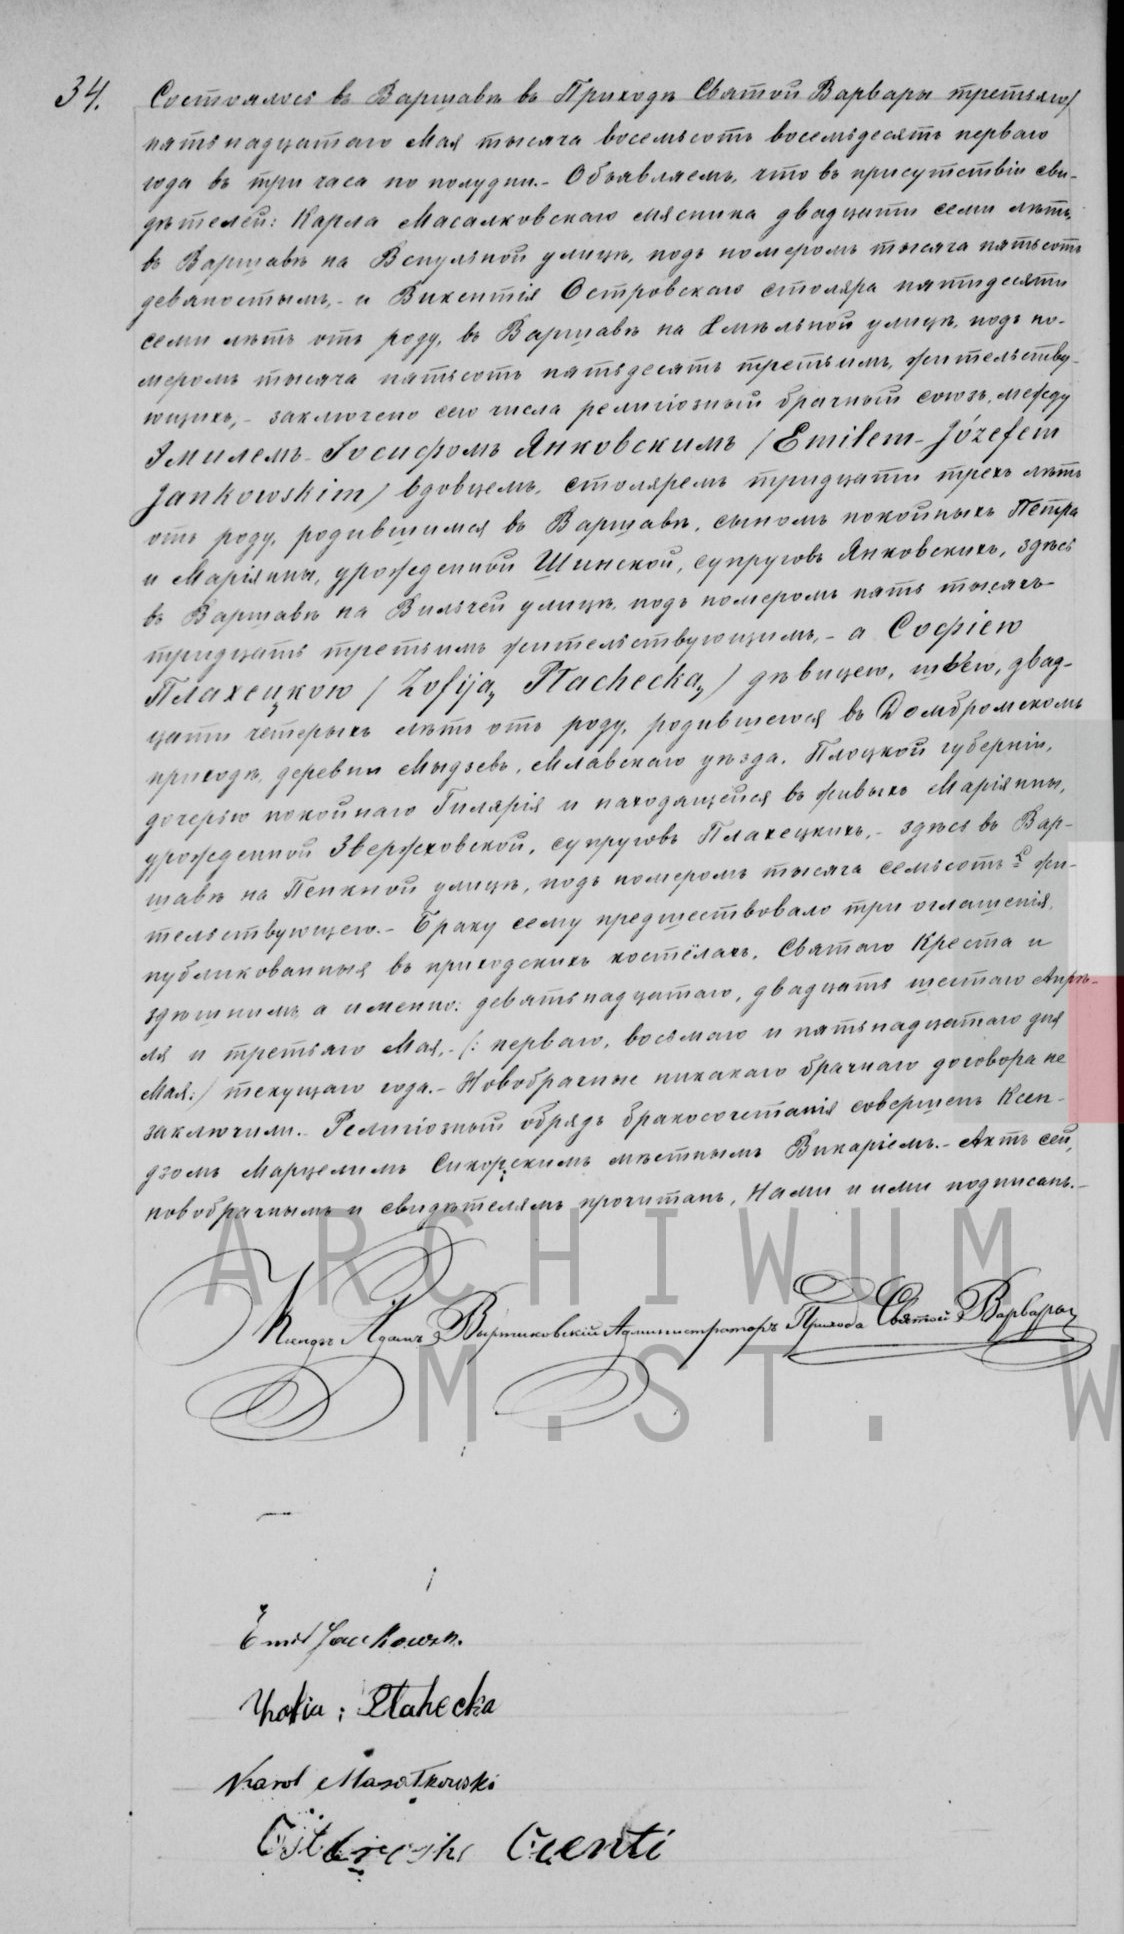 34. Состоялось въ Варшавѣ въ Приходѣ Святой Варвары третьяго/
пятьнадцатаго Мая тысяча восемьсотъ восемьдесятъ перваго
года въ три часа по полудни.- Объявляемъ, что въ присутствіи сви-
дѣтелей: Карла Масалковскаго мясника двадцати семи лѣтъ,
въ Варшавѣ на Вспульной улицѣ, подъ номеромъ тысяча пятьсотъ
девяностымъ,- и Викентія Островскаго столяра пятидесяти
семи лѣтъ отъ роду, въ Варшавѣ на Хмѣльной улицѣ, подъ но-
меромъ тысяча пятьсотъ пятьдесятъ третьимъ, жительству-
ющихъ,- заключено сего числа религіозный брачный союзъ, между
Эмилемъ-Іосифомъ Янковскимъ /Emilem-Józefem
Jankowskim/ вдовцемъ, столяремъ тридцати трехъ лѣтъ
отъ роду, родившимся въ Варшавѣ, сыномъ покойныхъ Петра
и Маріянны, урожденной Шинской, супруговъ Янковскихъ, здѣсь
въ Варшавѣ на Вильчей улицѣ, подъ номеромъ пять тысячъ
тридцать третьимъ жительствующимъ,- а Софіею
Плахецкою /Zofiją Płachecką/ дѣвицею, швѣю, двад-
цати четырехъ лѣтъ отъ роду, родившеюся въ Домбромскомъ
приходѣ, деревни Мыдзевъ, Млавскаго уѣзда, Плоцкой губерніи,
дочерью покойнаго Гилярія и находящейся въ живыхъ Маріянны,
урожденной Звержховской, супруговъ Плахецкихъ,- здѣсь въ Вар-
шавѣ на Пенкной улицѣ, подъ номеромъ тысяча семьсотъ жи-
тельствующею.- Браку сему предшествовало три оглашенія,
публикованныя въ приходскихъ костёлахъ, Святаго Креста и
здѣшнимъ а именно: девятьнадцатаго, двадцать шестаго Апрѣ-
ля и третьяго Мая,- /: перваго, восьмаго и пятьнадцатаго дня
Мая:/ текущаго года.- Новобрачные никакаго брачнаго договора не
заключили.- Религіозный обрядъ бракосочетанія совершенъ Ксен-
дзомъ Марцелимъ Сикорскимъ мѣстнымъ Викаріемъ.- Актъ сей,
новобрачнымъ и свидѣтелямъ прочитанъ, Нами и ими подписанъ.-
Ксендзъ Адамъ Администраторъ Прихода Святой Варвары
ARCHIWUM
M.ST. W
Emil Jankowski
Zhofia: Płahecka
Karol Masałkowski